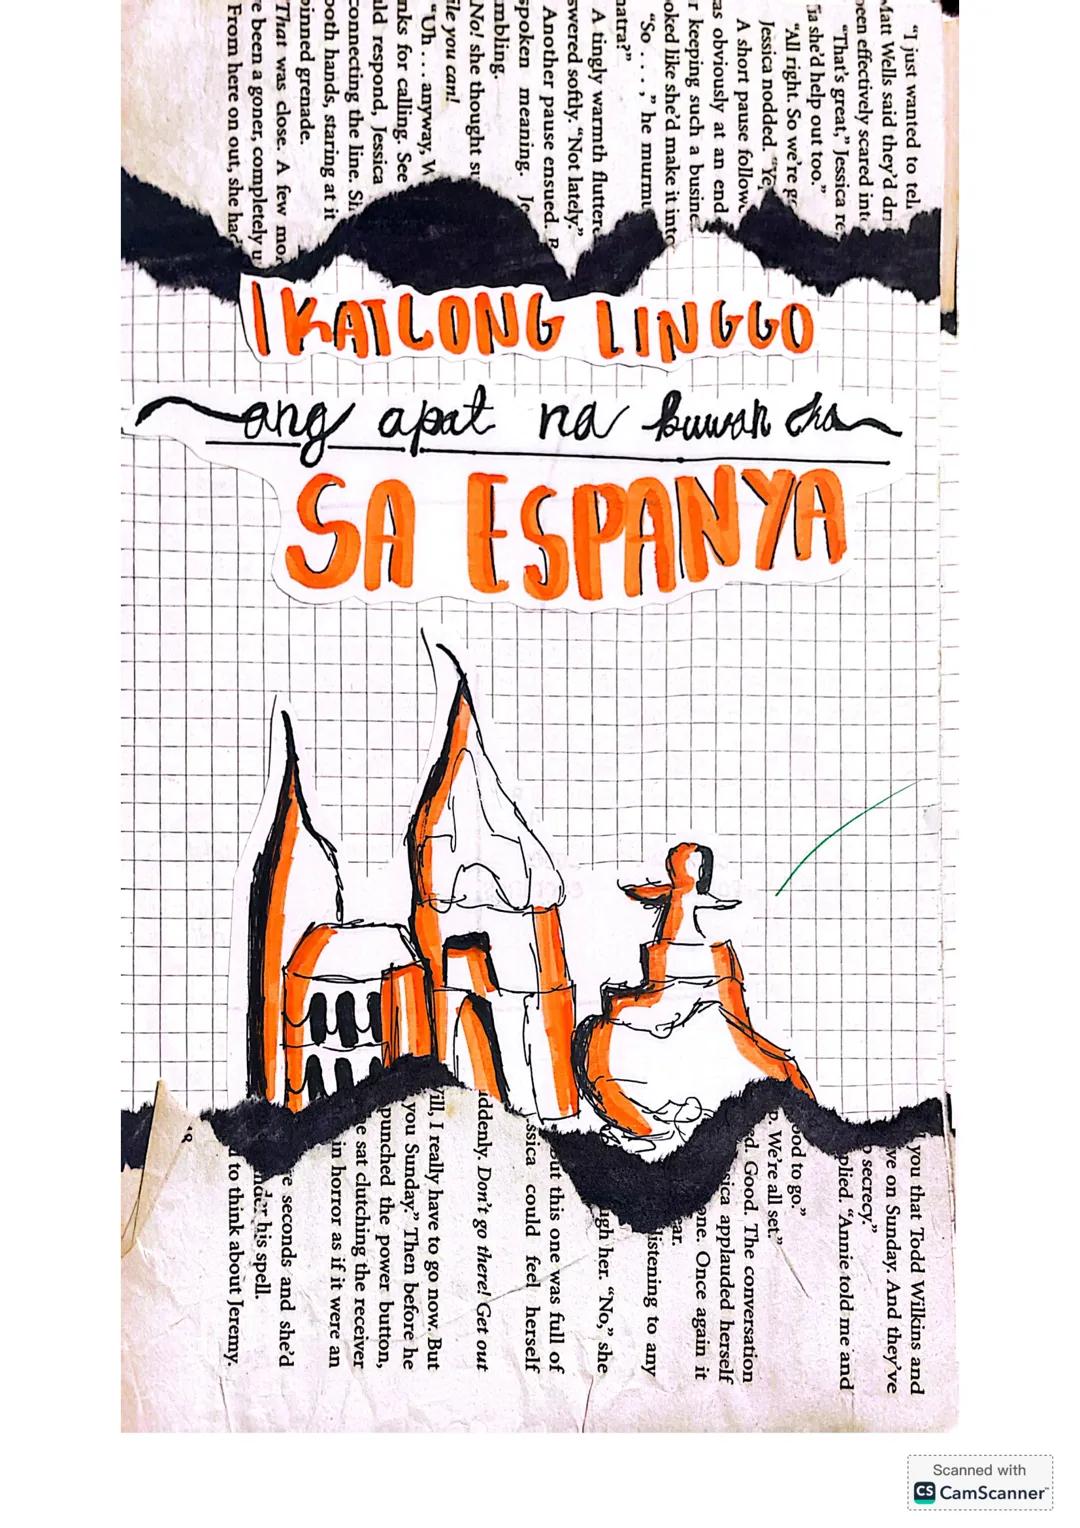 IKATLONG LINGGO
ang apat na buwan ko
SA ESPANYA
"I just wanted to tell
Matt Wells said they'd dri
been effectively scared into
"That's great," Jessica re
she'd help out too."
"All right. So we're
Jessica nodded. "Ye
A short pause follow
as obviously at an end
r keeping such a busine
oked like she'd make it into
"So . . . ," he murmu
natra?"
A tingly warmth fluttere
swered softly. "Not lately."
Another pause ensued.
spoken meaning. Je
mbling.
No! she thought su
ile you can!
"Uh . . . anyway, W
nks for calling. See
ld respond, Jessica
connecting the line. Sh
ooth hands, staring at it
pinned grenade.
That was close. A few mo
e been a goner, completely u
From here on out, she had
you that Todd Wilkins and
ve on Sunday. And they've
secrecy."
plied. "Annie told me and
ood to go."
p. We're all set."
ed. Good. The conversation
sica applauded herself
one. Once again it
ear.
listening to any
ugh her. "No," she
out this one was full of
ssica could feel herself
ddenly. Don't go there! Get out
ill, I really have to go now. But
you Sunday." Then before he
punched the power button,
e sat clutching the receiver
in horror as if it were an
e seconds and she'd
nder his spell.
to think about Jeremy.
18
Scanned with
CS CamScanner